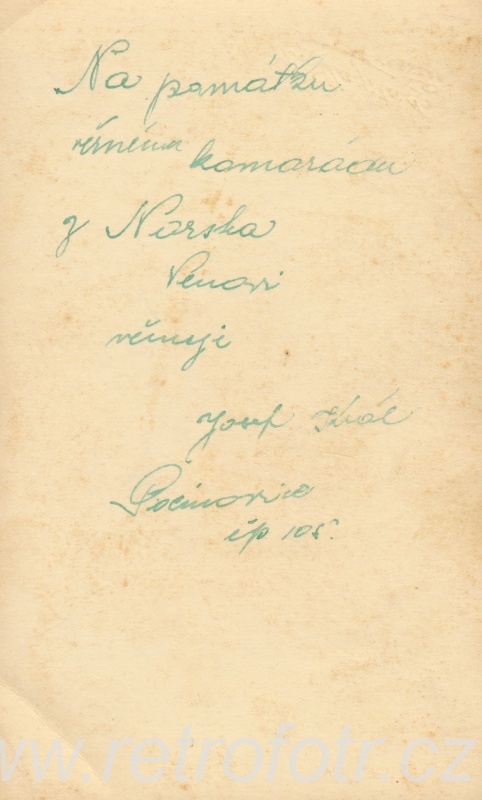 Na památku
věrnému kamarádu
z Norska
Venovi
věnuji
Josef Král
Pocinovice
čp 105.
www.retrofotr.cz